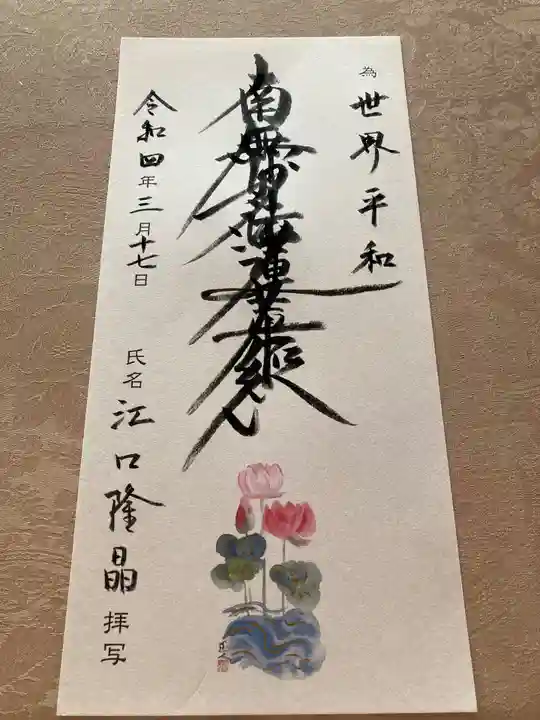 為 世界平和
南無妙法蓮華経
令和四年三月十七日
氏名 江口隆晶 拝写